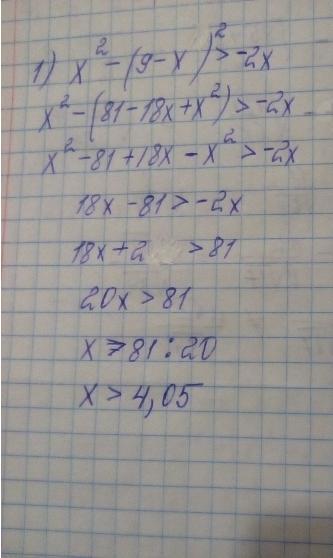 1) x² - (9 - x)² > -2x
x² - (81 - 18x + x²) > -2x
x² - 81 + 18x - x² > -2x
18x - 81 > -2x
18x + 2 > 81
20x > 81
x > 81 : 20
x > 4,05